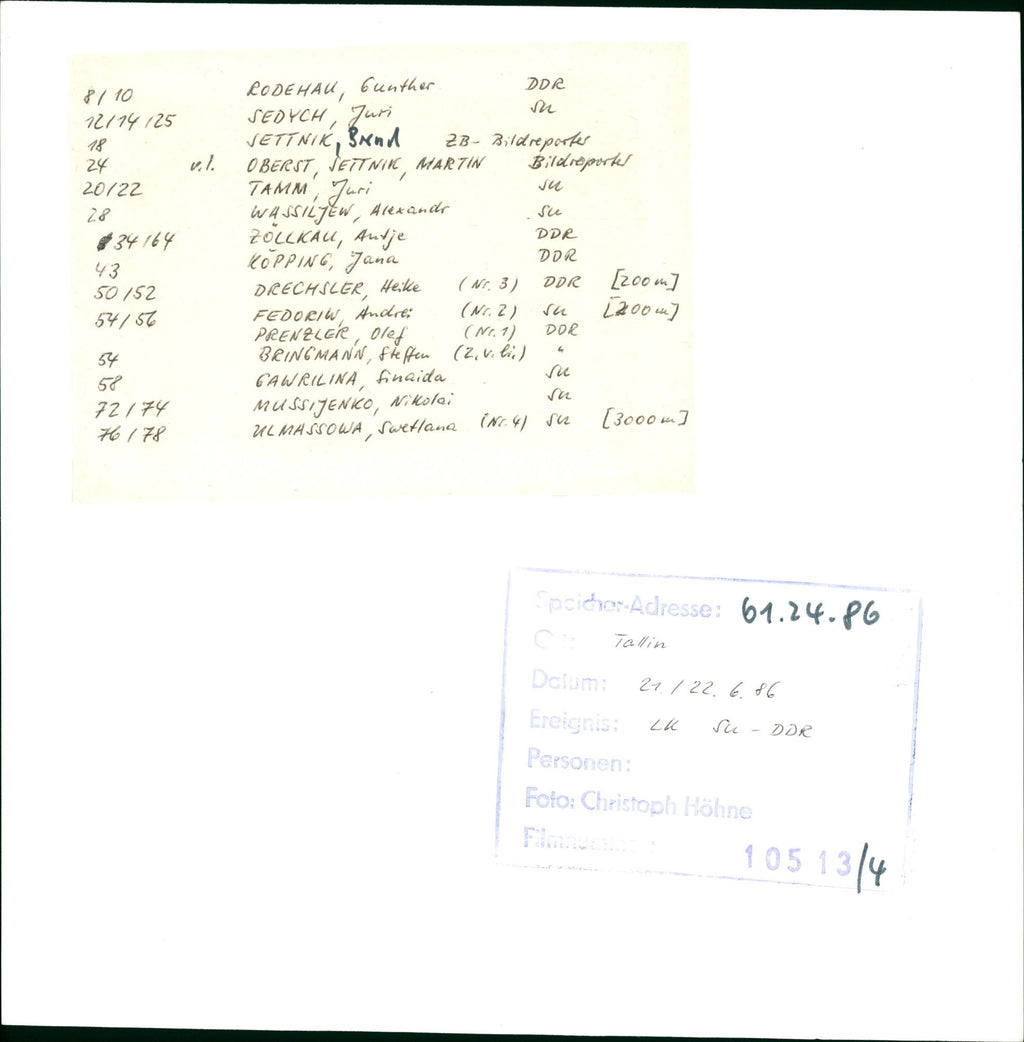 8/10 RODEHAU, Gunther DDR
12/14/25 SEDYCH, Juri SU
18 SETTNIK, Bernd ZB- Bildreporter
24 v.l. OBERST, SETTNIK, MARTIN Bildreporter
20/22 TAMM, Juri SU
28 WASSILJEW, Alexandr SU
34/64 ZÖLLKAU, Antje DDR
43 KÖPPING, Jana DDR
50/52 DRECHSLER, Heike (Nr. 3) DDR [200m]
54/56 FEDORIW, Andrei (Nr. 2) SU [200m]
PRENZLER, Olaf (Nr. 1) DDR
54 BRINGMANN, Steffen (2. v. li.) "
58 GAWRILINA, Sinaida SU
72/74 MUSSIJENKO, Nikolai SU
76/78 ULMASSOWA, Swetlana (Nr. 4) SU [3000m]
Speicher-Adresse: 61.24.86
Tallin
Datum: 21./22. 6. 86
Ereignis: LK SU - DDR
Personen:
Foto: Christoph Höhne
Filmnummer: 10513/4